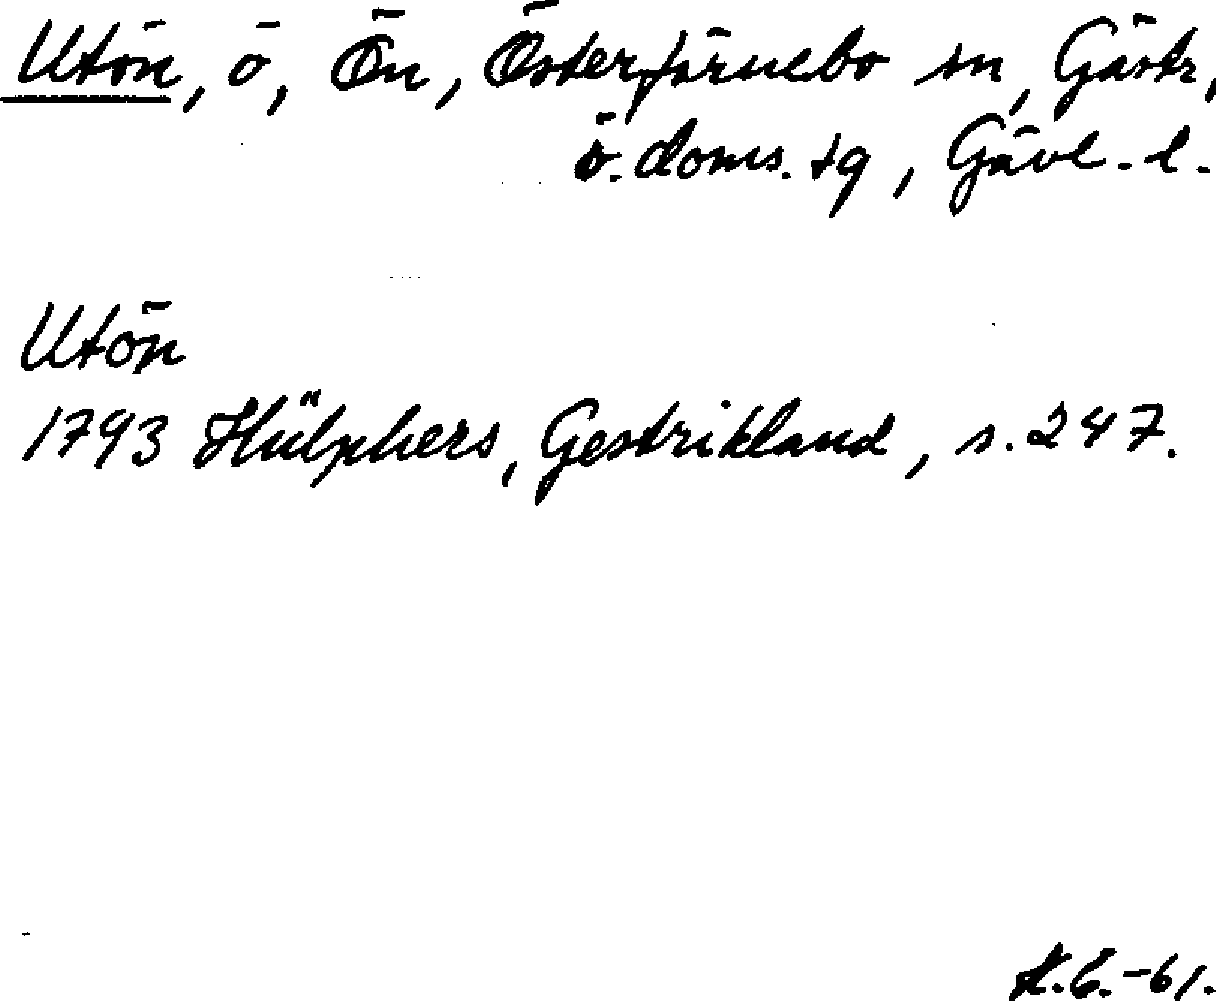 Utön, ö, Ön, Österfärnebo sn, Gästr,
ö. doms. tg, Gävl. l.
Utön
1793 Hülphers, Gestrikland, s. 247.
-61.